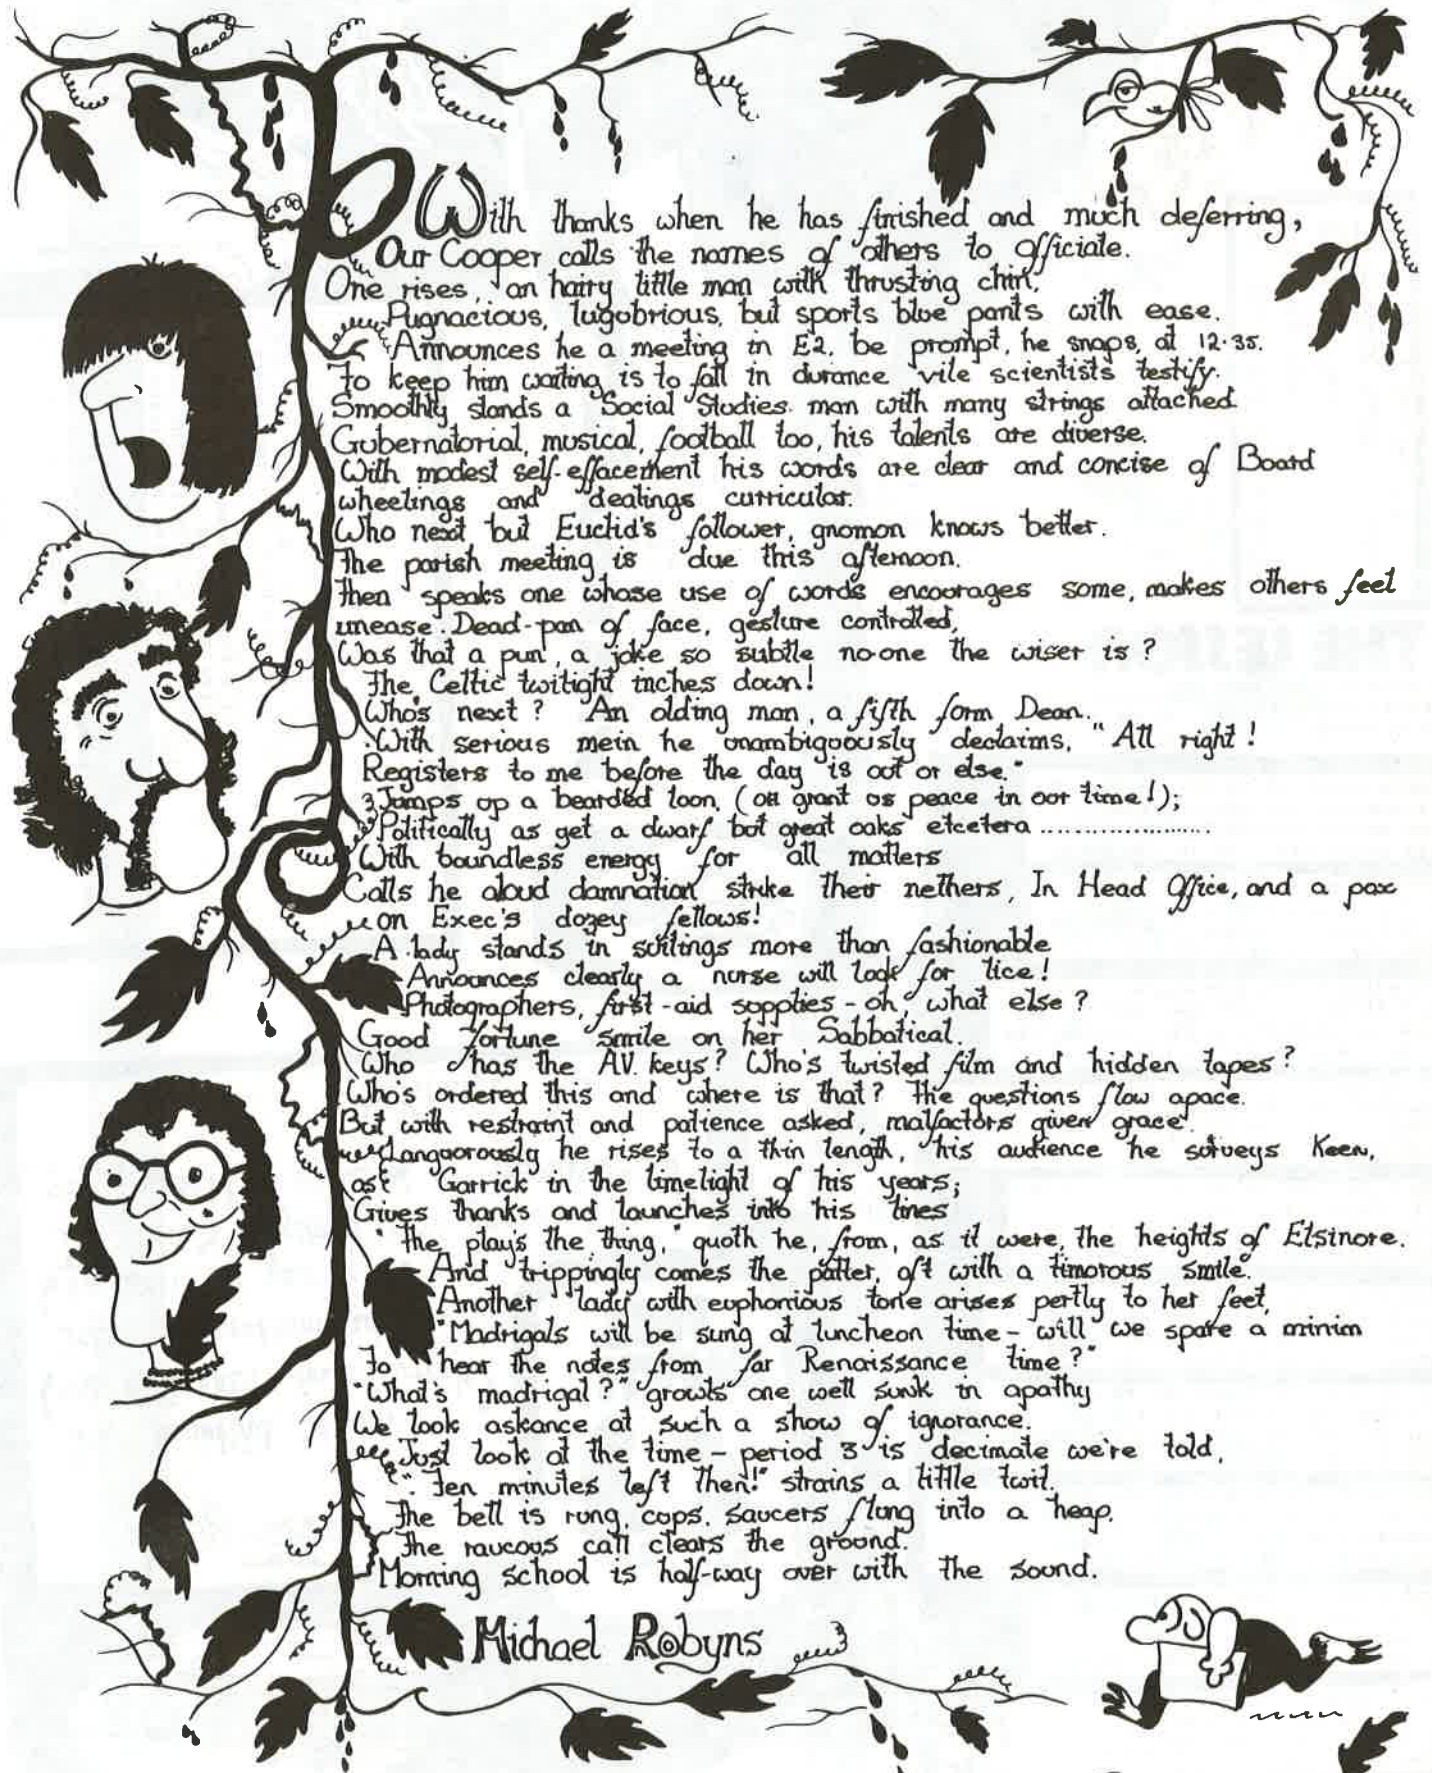 With thanks when he has finished and much deferring,
Our Cooper calls the names of others to officiate.
One rises, an hairy little man with thrusting chin,
Pugnacious, lugubrious, but sports blue pants with ease.
Announces he a meeting in E2, be prompt, he snaps, at 12.35.
To keep him waiting is to fall in durance vile scientists testify.
Smoothly stands a Social Studies man with many strings attached.
Gubernatorial, musical, football too, his talents are diverse.
With modest self-effacement his words are clear and concise of Board
wheelings and dealings curricular.
Who next but Euclid's follower, gnomon knows better.
The parish meeting is due this afternoon.
Then speaks one whose use of words encourages some, makes others feel
unease. Dead-pan of face, gesture controlled,
Was that a pun, a joke so subtle no-one the wiser is?
The Celtic twilight inches down!
Who's next? An olding man, a fifth form Dean.
With serious mein he unambiguously declaims, "All right!
Registers to me before the day is out or else."
Jumps up a bearded loon, (oh grant us peace in our time!);
Politically as yet a dwarf but great oaks etcetera .....................
With boundless energy for all matters
Calls he aloud damnation strike their nethers, In Head Office, and a pox
on Exec's dozey fellows!
A lady stands in suitings more than fashionable
Announces clearly a nurse will look for lice!
Photographers, first-aid supplies - oh, what else?
Good fortune smile on her Sabbatical.
Who has the AV. keys? Who's twisted film and hidden tapes?
Who's ordered this and where is that? The questions flow apace.
But with restraint and patience asked, malfactors given grace.
Languorously he rises to a thin length, his audience he surveys Keen,
as Garrick in the limelight of his years;
Gives thanks and launches into his lines
"The play's the thing," quoth he, from, as it were, the heights of Elsinore.
And trippingly comes the patter, oft with a timorous smile.
Another lady with euphonious tone arises pertly to her feet,
"Madrigals will be sung at luncheon time - will we spare a minim
To hear the notes from far Renaissance time?"
"What's madrigal?" growls one well sunk in apathy
We look askance at such a show of ignorance.
Just look at the time - period 3 is decimate we're told,
"Ten minutes left then!" strains a little twit.
The bell is rung, cups, saucers flung into a heap,
The raucous call clears the ground.
Morning school is half-way over with the sound.
Michael Robyns